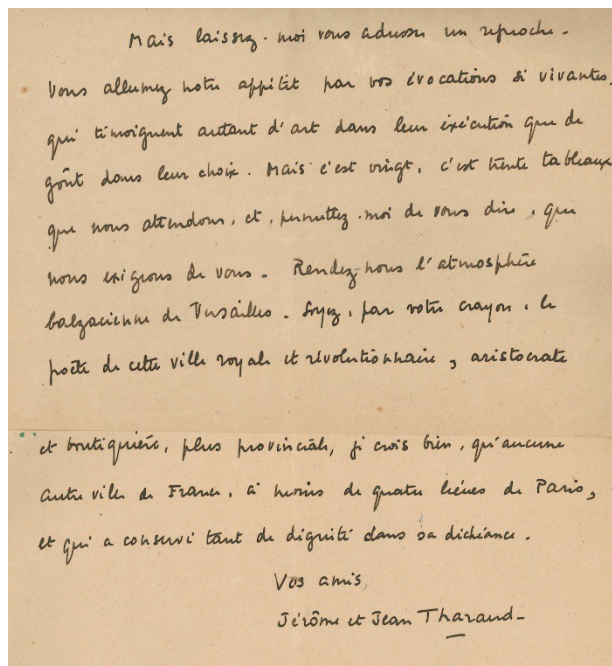 Mais laissez-moi vous adresser un reproche.
Vous allumez notre appétit par vos évocations si vivantes,
qui témoignent autant d'art dans leur exécution que de
goût dans leur choix. Mais c'est vingt, c'est trente tableaux
que nous attendons, et, permettez-moi de vous dire, que
nous exigeons de vous. Rendez-nous l'atmosphère
balzacienne de Versailles. Soyez, par votre crayon, le
poète de cette ville royale et révolutionnaire, aristocrate
et boutiquière, plus provinciale, je crois bien, qu'aucune
autre ville de France, à moins de quatre lieues de Paris,
et qui a conservé tant de dignité dans sa déchéance.
Vos amis,
Jérôme et Jean Tharaud-